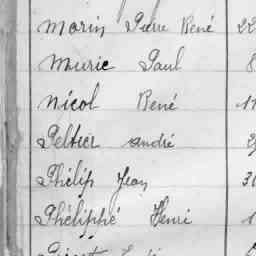 Morin Pierre René 22
Muric Paul 8
Nicol René 11
Peltier André 2
Phélip Jean 30
Phélippé Henri 1